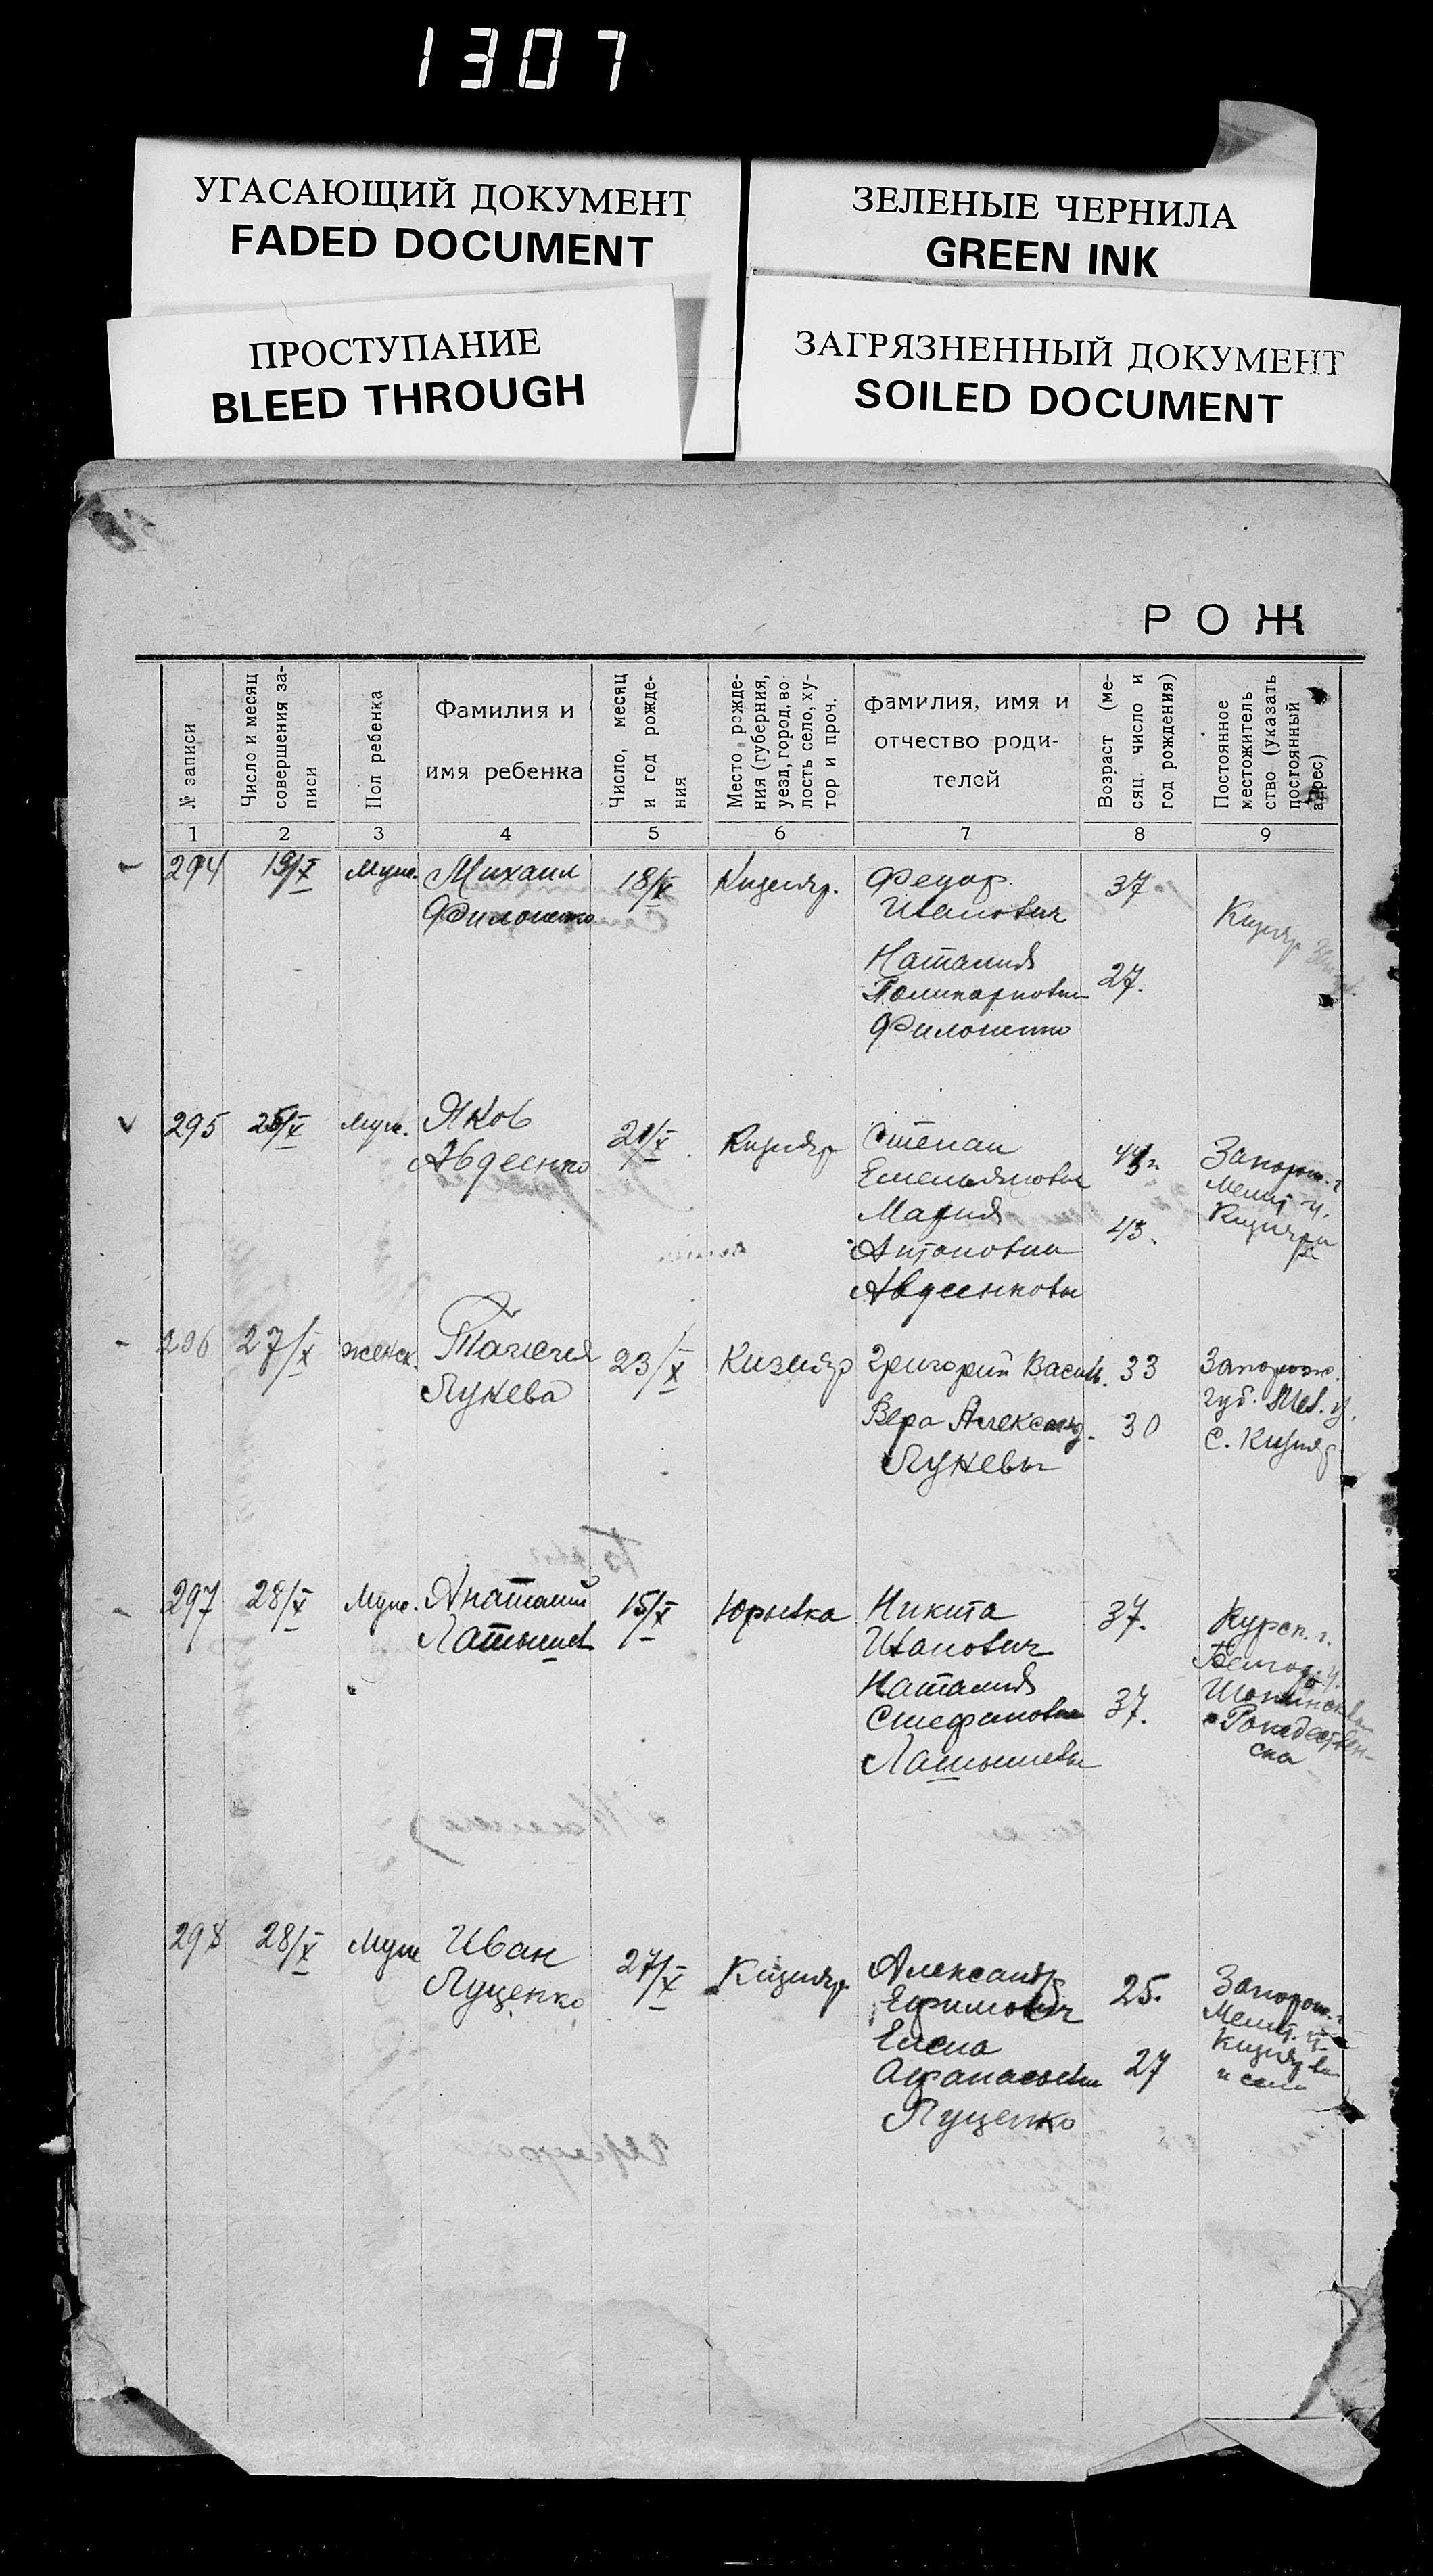 1307
УГАСАЮЩИЙ ДОКУМЕНТ
FADED DOCUMENT
ЗЕЛЕНЫЕ ЧЕРНИЛА
GREEN INK
ПРОСТУПАНИЕ
BLEED THROUGH
ЗАГРЯЗНЕННЫЙ ДОКУМЕНТ
SOILED DOCUMENT
РОЖ
№ записи
Число и месяц
совершения за-
писи
Пол ребенка
Фамилия и
имя ребенка
Число, месяц
и год рожде-
ния
Место рожде-
ния (губерния,
уезд, город, во-
лость село, ху-
тор и проч.
Фамилия, имя и
отчество роди-
телей
Возраст (ме-
сяц число и
год рождения)
Постоянное
местожитель
ство (указать
постоянный
адрес)
1 2 3 4 5 6 7 8 9
294 19/X Муж. Михаил 18/X Кизияр. Федор 37
Филоненко Иванович Кизияр
Наталия 27.
Поликарповна
Филоненко
295 25/X Муж. Яков 21/X Кизияр Степан
Авдеенко Емельянович Запорож. г.
Мария 43. Мелит. у.
Антоновна
Авдеенковы
296 27/X женск. Таисия 23/X Кизияр Григорий Васил. 33 Запорож.
Лунева Вера Александ. 30 губ. Мел. у.
Луневы с. Кизияр
297 28/X Муж. Анатолий 15/X Юрьевка Никита 37. Курск. г.
Латышев Иванович Белгор. у.
Наталия 37.
Стефановна Рождествен-
Латышевы ска
298 28/X Муж Иван 27/X Кизияр. Александр 25. Запорож. г.
Луценко Ефимович Мелит. у.
Елена 27
Афанасьевна
Луценко